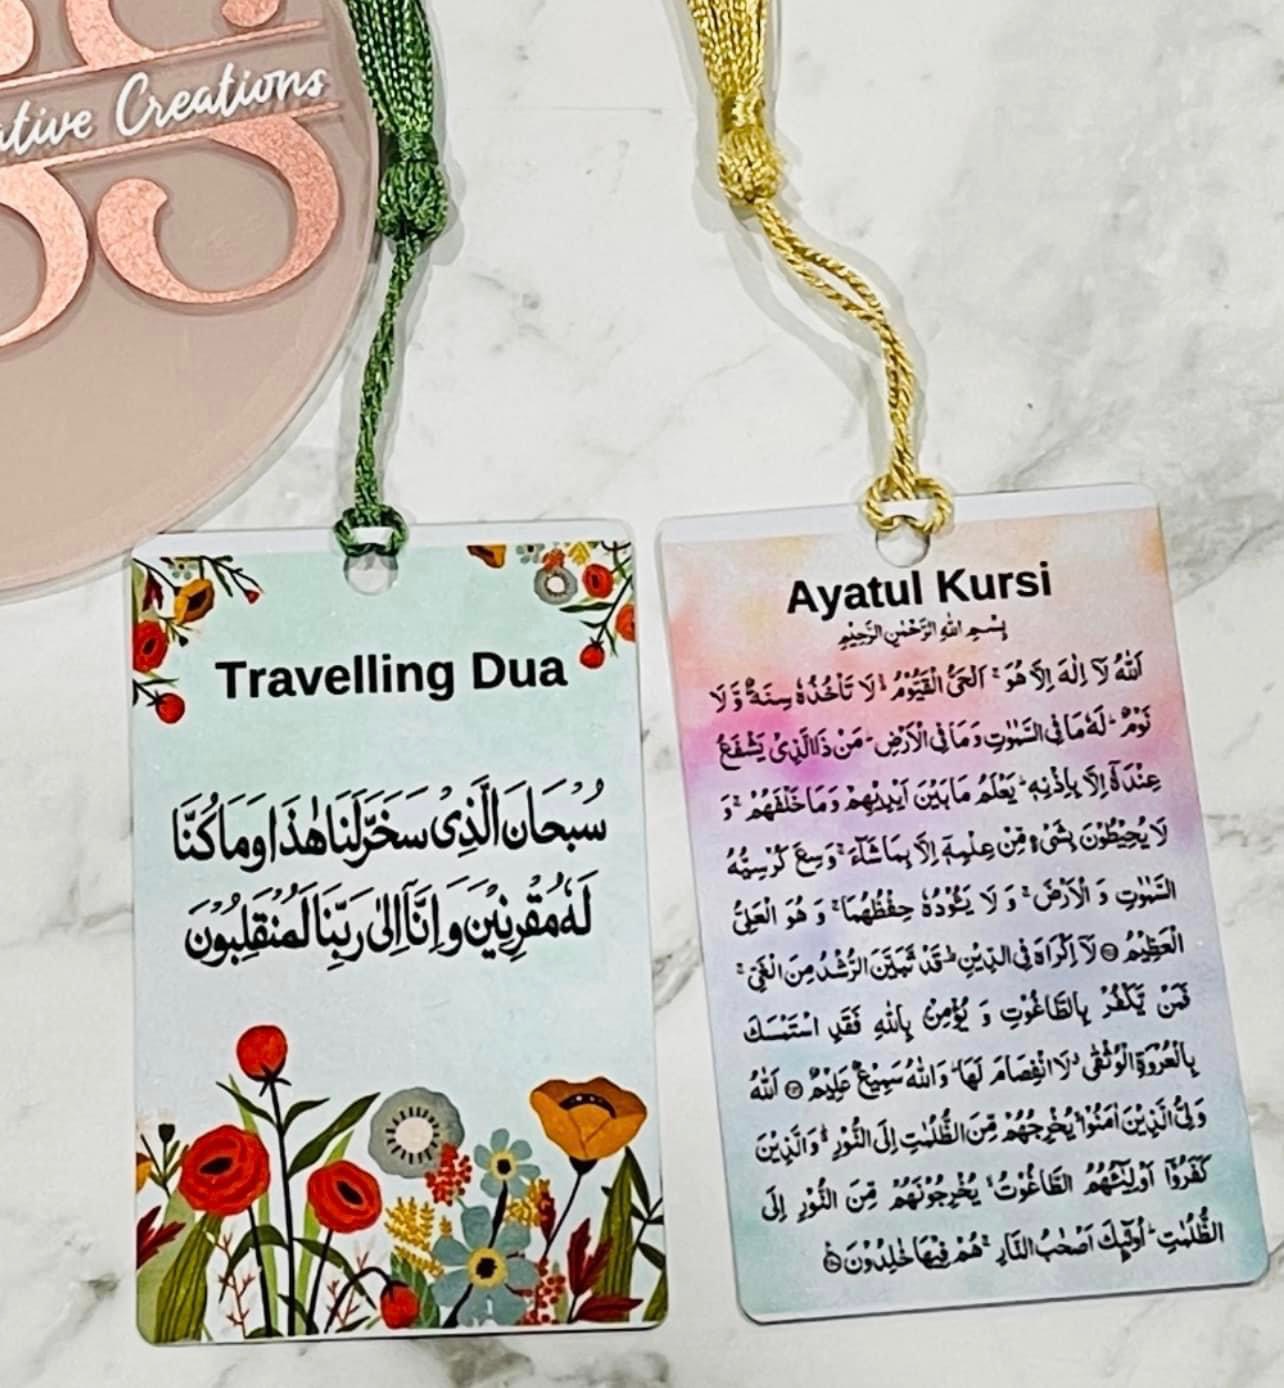 ative Creations
Travelling Dua
سُبْحَانَ الَّذِىْ سَخَّرَ لَنَا هٰذَا وَمَا كُنَّا
لَهٗ مُقْرِنِيْنَ وَاِنَّآ اِلٰى رَبِّنَا لَمُنْقَلِبُوْنَ
Ayatul Kursi
بِسْمِ اللهِ الرَّحْمٰنِ الرَّحِيْمِ
اَللهُ لَآ اِلٰهَ اِلَّا هُوَ ۚ اَلْحَىُّ الْقَيُّوْمُ ۚ لَا تَاْخُذُهٗ سِنَةٌ وَّ لَا
نَوْمٌ ؕ لَهٗ مَا فِى السَّمٰوٰتِ وَ مَا فِى الْاَرْضِ ؕ مَنْ ذَا الَّذِىْ يَشْفَعُ
عِنْدَهٗٓ اِلَّا بِاِذْنِهٖ ؕ يَعْلَمُ مَا بَيْنَ اَيْدِيْهِمْ وَ مَا خَلْفَهُمْ ۚ وَ
لَا يُحِيْطُوْنَ بِشَىْءٍ مِّنْ عِلْمِهٖٓ اِلَّا بِمَا شَآءَ ۚ وَسِعَ كُرْسِيُّهُ
السَّمٰوٰتِ وَ الْاَرْضَ ۚ وَ لَا يَـُٔوْدُهٗ حِفْظُهُمَا ۚ وَ هُوَ الْعَلِىُّ
الْعَظِيْمُ ۝ لَآ اِكْرَاهَ فِى الدِّيْنِ ۙ قَدْ تَّبَيَّنَ الرُّشْدُ مِنَ الْغَىِّ ۚ
فَمَنْ يَّكْفُرْ بِالطَّاغُوْتِ وَ يُؤْمِنْۢ بِاللهِ فَقَدِ اسْتَمْسَكَ
بِالْعُرْوَةِ الْوُثْقٰى ۗ لَا انْفِصَامَ لَهَا ؕ وَاللهُ سَمِيْعٌ عَلِيْمٌ ۝ اَللهُ
وَلِىُّ الَّذِيْنَ اٰمَنُوْا ۙ يُخْرِجُهُمْ مِّنَ الظُّلُمٰتِ اِلَى النُّوْرِ ؕ وَالَّذِيْنَ
كَفَرُوْٓا اَوْلِيٰٓـُٔهُمُ الطَّاغُوْتُ ۙ يُخْرِجُوْنَهُمْ مِّنَ النُّوْرِ اِلَى
الظُّلُمٰتِ ؕ اُولٰٓئِكَ اَصْحٰبُ النَّارِ ۚ هُمْ فِيْهَا خٰلِدُوْنَ ۝